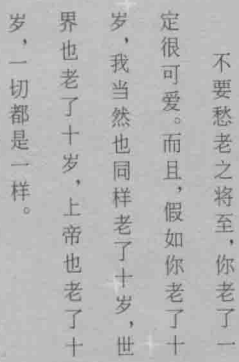 不要愁老之将至，你老了一
定很可爱。而且，假如你老了十
岁，我当然也同样老了十岁，世
界也老了十岁，上帝也老了十
岁，一切都是一样。